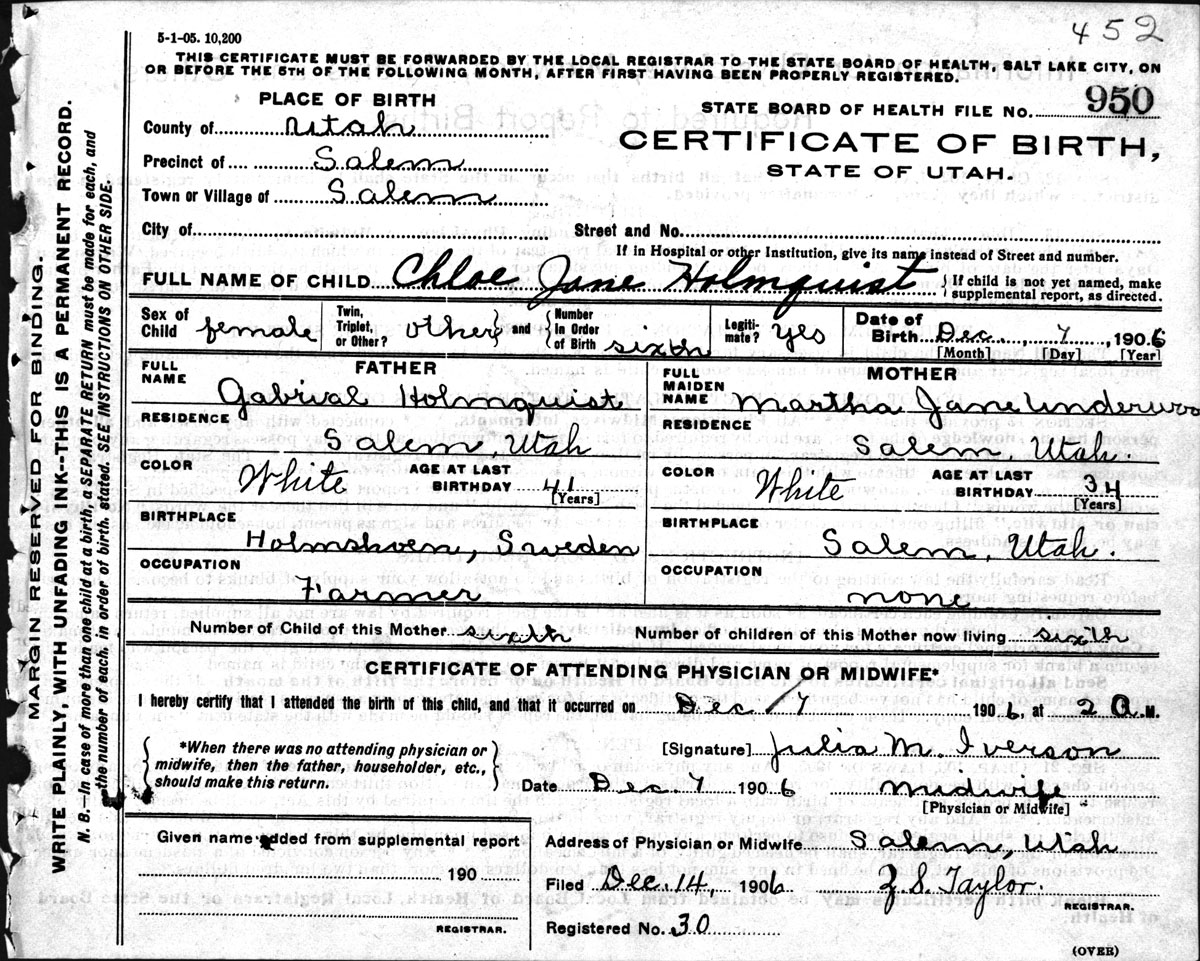 452
5-1-05. 10,200
THIS CERTIFICATE MUST BE FORWARDED BY THE LOCAL REGISTRAR TO THE STATE BOARD OF HEALTH, SALT LAKE CITY, ON
OR BEFORE THE 5TH OF THE FOLLOWING MONTH, AFTER FIRST HAVING BEEN PROPERLY REGISTERED.
PLACE OF BIRTH
County of Utah
Precinct of Salem
Town or Village of Salem
STATE BOARD OF HEALTH FILE No. 950
CERTIFICATE OF BIRTH,
STATE OF UTAH.
City of Street and No.
If in Hospital or other Institution, give its name instead of Street and number.
FULL NAME OF CHILD Chloe Jane Holmquist { If child is not yet named, make
supplemental report, as directed.
Sex of Child female
Twin, Triplet, or Other? other } and { Number In Order of Birth sixth
Legiti- mate? yes
Date of Birth Dec. 7, 1906
[Month] [Day] [Year]
FATHER
FULL NAME Gabrial Holmquist
RESIDENCE
Salem, Utah
COLOR White AGE AT LAST BIRTHDAY 41
[Years]
BIRTHPLACE
Holmshoen, Sweden
OCCUPATION
Farmer
MOTHER
FULL MAIDEN NAME Martha Jane Underwoo
RESIDENCE
Salem, Utah.
COLOR White AGE AT LAST BIRTHDAY 34
[Years]
BIRTHPLACE
Salem, Utah.
OCCUPATION
none
Number of Child of this Mother sixth Number of children of this Mother now living sixth
CERTIFICATE OF ATTENDING PHYSICIAN OR MIDWIFE*
I hereby certify that I attended the birth of this child, and that it occurred on Dec / 7 1906, at 2 A.M.
{ *When there was no attending physician or
midwife, then the father, householder, etc.,
should make this return. }
[Signature] Julia M. Iverson
Date Dec. 7 1906 Midwife
[Physician or Midwife]
Given name added from supplemental report
190
REGISTRAR.
Address of Physician or Midwife Salem, Utah
Filed Dec. 14, 1906 Z. S. Taylor.
REGISTRAR.
Registered No. 30
(OVER)
MARGIN RESERVED FOR BINDING.
WRITE PLAINLY, WITH UNFADING INK--THIS IS A PERMANENT RECORD.
N. B. In case of more than one child at a birth, a SEPARATE RETURN must be made for each, and
the number of each, in order of birth, stated. SEE INSTRUCTIONS ON OTHER SIDE.